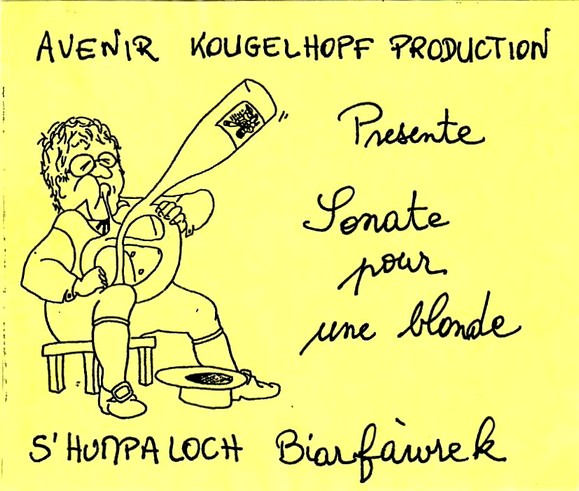 AVENIR KOUGELHOPF PRODUCTION
Presente
Sonate
pour
une blonde
S'HUMPALOCH Biarfàwrek